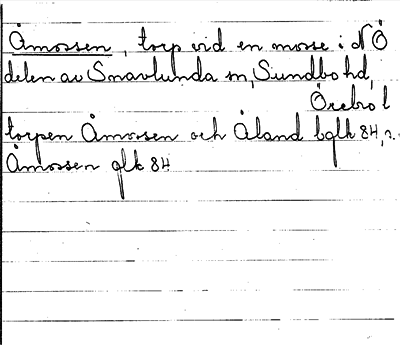 Åmossen, torp vid en mosse i NÖ
delen av Snavlunda sn, Sundbo hd,
Örebro l
torpen Åmossen och Åland bglk 84, r.
Åmossen glk 84